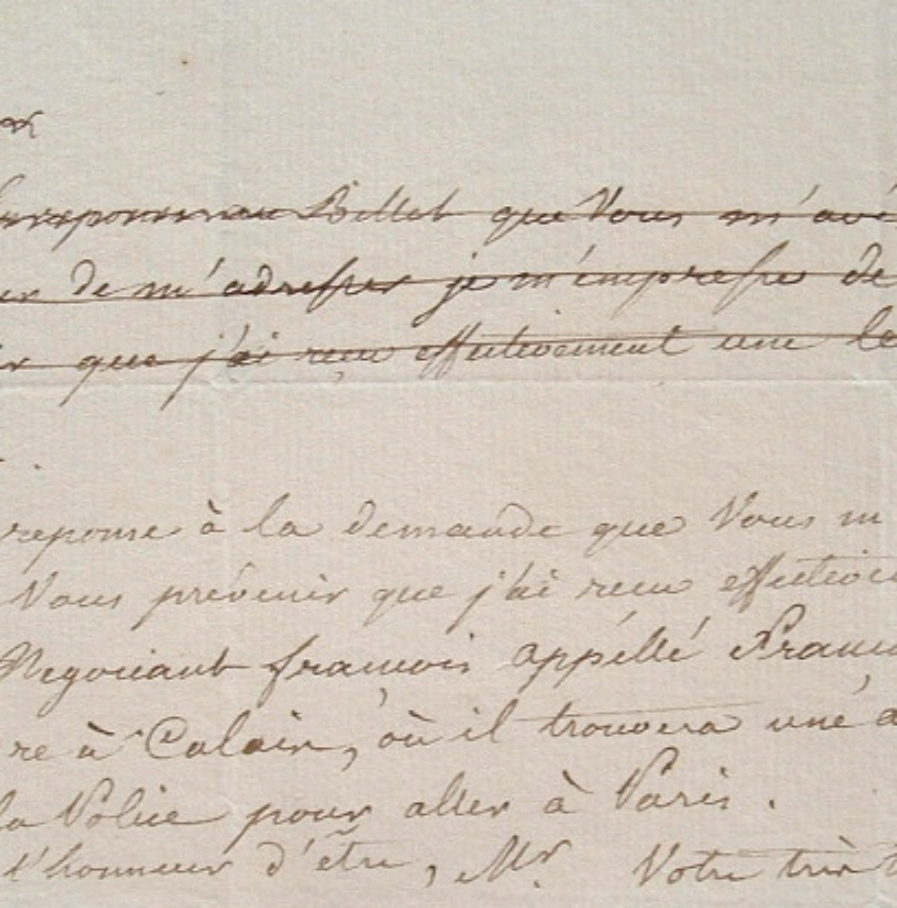 reponse au Billet que Vous m'avé
de m'adresser je m'empresse de
que j'ai reçu effectivement une le
reponse à la demande que Vous m
Vous prévenir que j'ai recu effective
Negociant francois appéllé Franc
re à Calais, où il trouvera une a
la Police pour aller à Paris.
l'honneur d'être, Mr. Votre très t